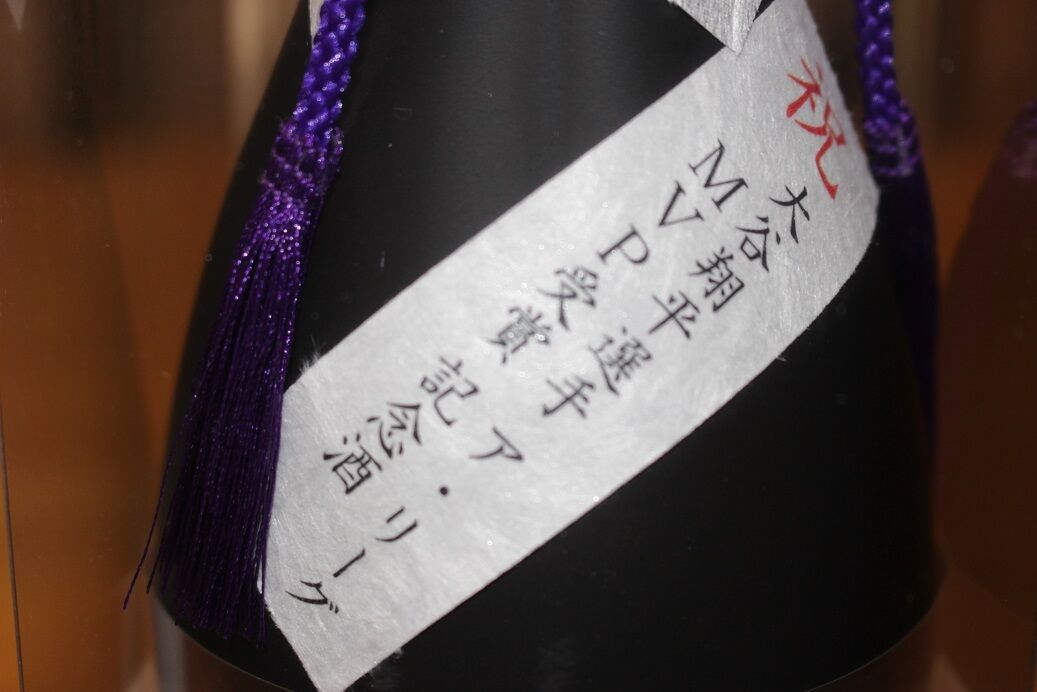 祝
大谷翔平選手 ア・リーグ
MVP受賞 記念酒